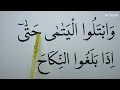 وَابْتَلُوا الْيَتٰمٰى حَتّٰٓى
اِذَا بَلَغُوا النِّكَاحَ